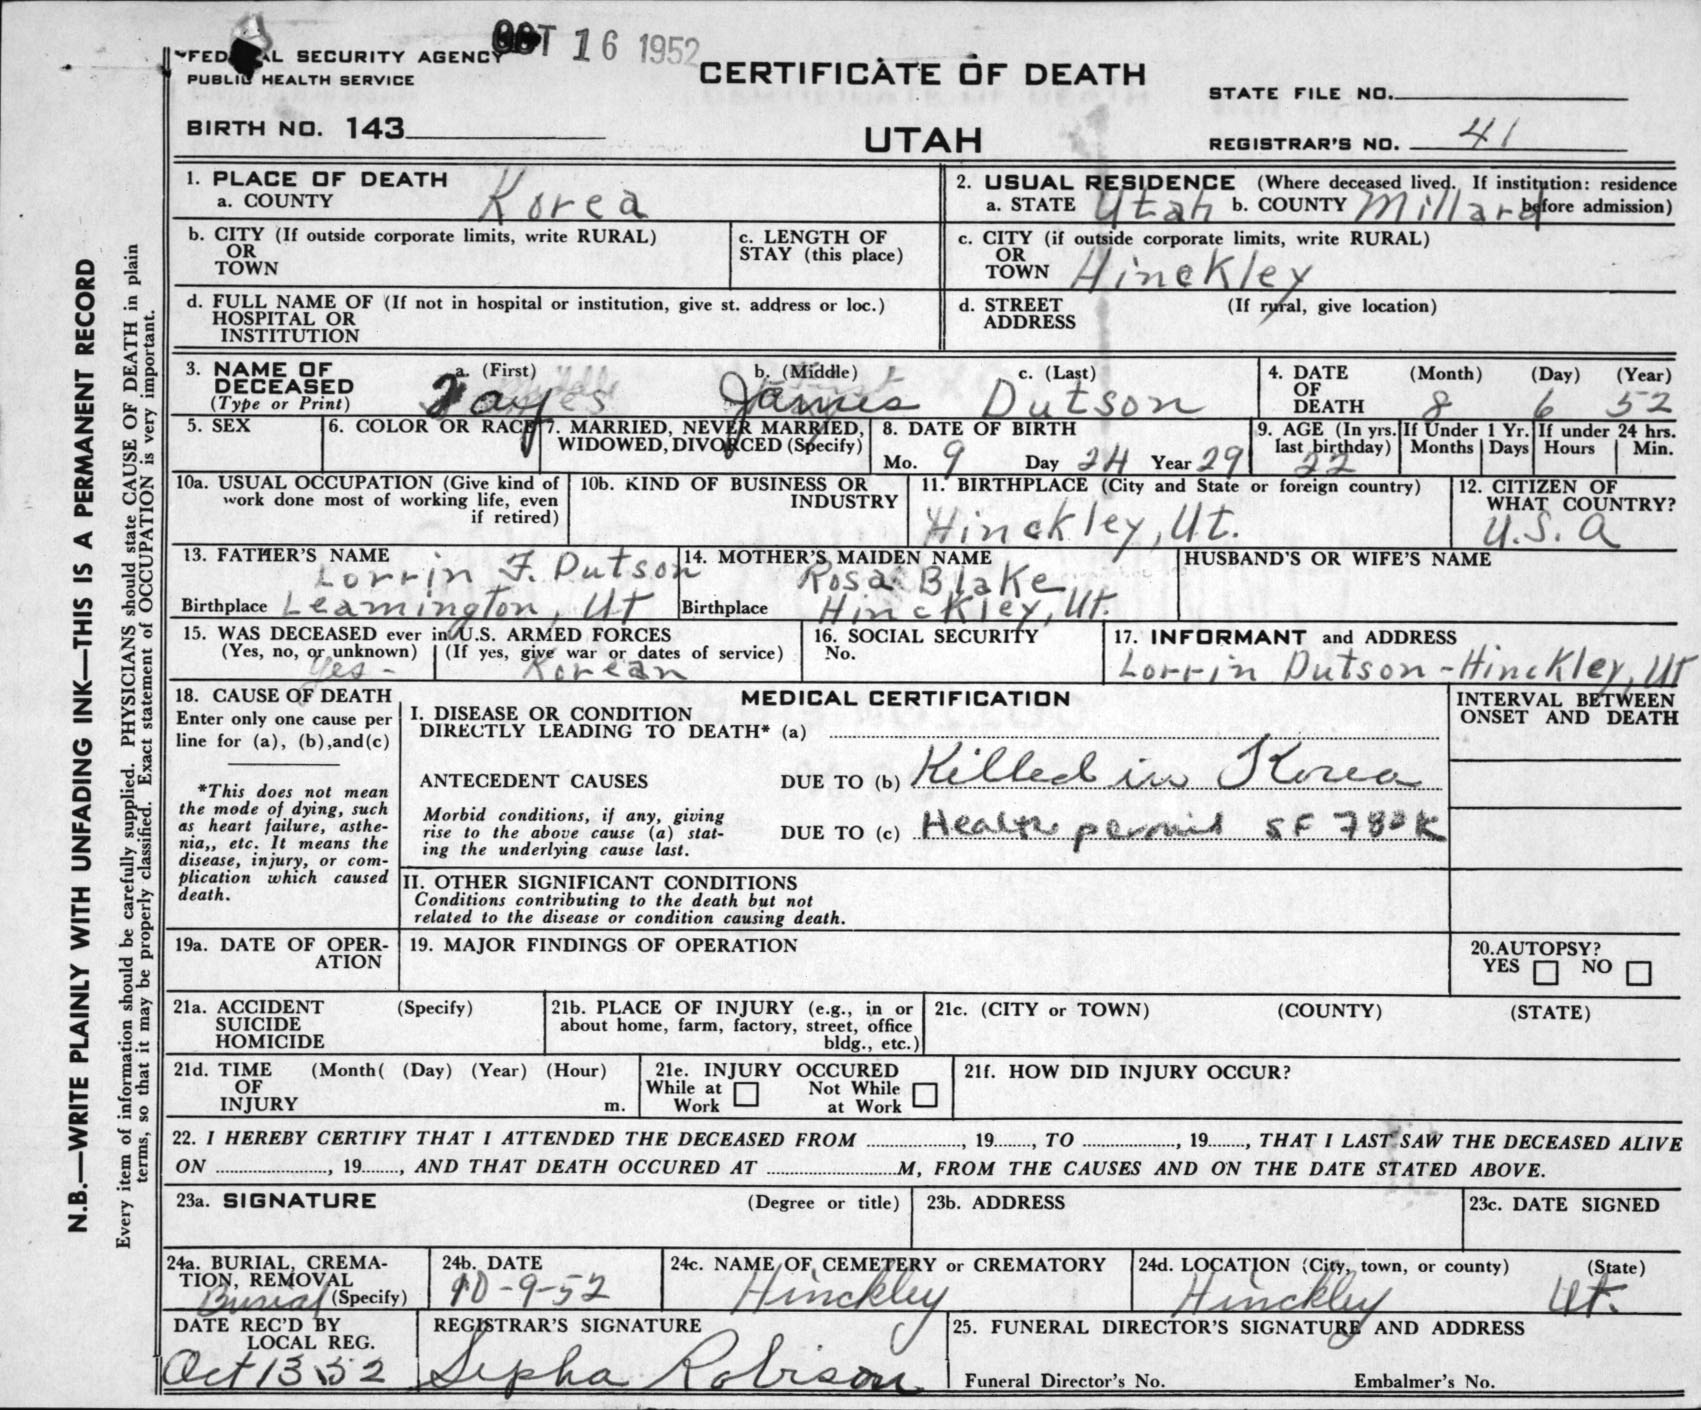 OCT 16 1952
FEDERAL SECURITY AGENCY
PUBLIC HEALTH SERVICE
CERTIFICATE OF DEATH
STATE FILE NO.
BIRTH NO. 143
UTAH
REGISTRAR'S NO. 41
1. PLACE OF DEATH
a. COUNTY Korea
2. USUAL RESIDENCE (Where deceased lived. If institution: residence
a. STATE Utah b. COUNTY Millard before admission)
b. CITY (If outside corporate limits, write RURAL)
OR
TOWN
c. LENGTH OF
STAY (this place)
c. CITY (if outside corporate limits, write RURAL)
OR
TOWN Hinckley
d. FULL NAME OF (If not in hospital or institution, give st. address or loc.)
HOSPITAL OR
INSTITUTION
d. STREET (If rural, give location)
ADDRESS
3. NAME OF
DECEASED
(Type or Print)
a. (First) b. (Middle) c. (Last)
James Dutson
4. DATE (Month) (Day) (Year)
OF
DEATH 8 6 52
5. SEX
6. COLOR OR RACE
7. MARRIED, NEVER MARRIED,
WIDOWED, DIVORCED (Specify)
8. DATE OF BIRTH
Mo. 9 Day 24 Year 29
9. AGE (In yrs.
last birthday) 22
If Under 1 Yr.
Months Days
If under 24 hrs.
Hours Min.
10a. USUAL OCCUPATION (Give kind of
work done most of working life, even
if retired)
10b. KIND OF BUSINESS OR
INDUSTRY
11. BIRTHPLACE (City and State or foreign country)
Hinckley, Ut.
12. CITIZEN OF
WHAT COUNTRY?
U.S.A
13. FATHER'S NAME
Lorrin F. Dutson
Birthplace Leamington, Ut
14. MOTHER'S MAIDEN NAME
Rosa Blake
Birthplace Hinckley, Ut.
HUSBAND'S OR WIFE'S NAME
15. WAS DECEASED ever in U.S. ARMED FORCES
(Yes, no, or unknown) (If yes, give war or dates of service)
yes - Korean
16. SOCIAL SECURITY
No.
17. INFORMANT and ADDRESS
Lorrin Dutson - Hinckley, Ut
18. CAUSE OF DEATH
Enter only one cause per
line for (a), (b), and (c)
*This does not mean
the mode of dying, such
as heart failure, asthe-
nia,, etc. It means the
disease, injury, or com-
plication which caused
death.
MEDICAL CERTIFICATION
I. DISEASE OR CONDITION
DIRECTLY LEADING TO DEATH* (a)
ANTECEDENT CAUSES DUE TO (b) Killed in Korea
Morbid conditions, if any, giving
rise to the above cause (a) stat-
ing the underlying cause last.
DUE TO (c) Health permit SF 780K
II. OTHER SIGNIFICANT CONDITIONS
Conditions contributing to the death but not
related to the disease or condition causing death.
INTERVAL BETWEEN
ONSET AND DEATH
19a. DATE OF OPER-
ATION
19. MAJOR FINDINGS OF OPERATION
20. AUTOPSY?
YES NO
21a. ACCIDENT (Specify)
SUICIDE
HOMICIDE
21b. PLACE OF INJURY (e.g., in or
about home, farm, factory, street, office
bldg., etc.)
21c. (CITY or TOWN) (COUNTY) (STATE)
21d. TIME (Month( (Day) (Year) (Hour)
OF
INJURY m.
21e. INJURY OCCURED
While at Work Not While at Work
21f. HOW DID INJURY OCCUR?
22. I HEREBY CERTIFY THAT I ATTENDED THE DECEASED FROM ........, 19......, TO ........, 19......, THAT I LAST SAW THE DECEASED ALIVE
ON ........, 19......, AND THAT DEATH OCCURED AT ........M, FROM THE CAUSES AND ON THE DATE STATED ABOVE.
23a. SIGNATURE (Degree or title)
23b. ADDRESS
23c. DATE SIGNED
24a. BURIAL, CREMA-
TION, REMOVAL
Burial (Specify)
24b. DATE
10-9-52
24c. NAME OF CEMETERY or CREMATORY
Hinckley
24d. LOCATION (City, town, or county) (State)
Hinckley Ut.
DATE REC'D BY
LOCAL REG.
Oct 13 52
REGISTRAR'S SIGNATURE
Sepha Robison
25. FUNERAL DIRECTOR'S SIGNATURE AND ADDRESS
Funeral Director's No. Embalmer's No.
N.B.—WRITE PLAINLY WITH UNFADING INK—THIS IS A PERMANENT RECORD
Every item of information should be carefully supplied. PHYSICIANS should state CAUSE OF DEATH in plain
terms, so that it may be properly classified. Exact statement of OCCUPATION is very important.